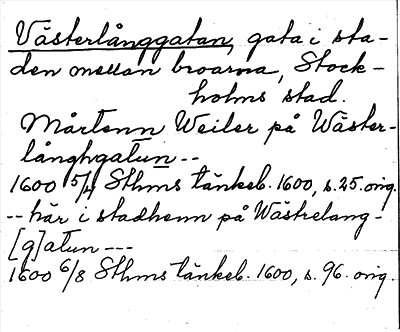 Västerlånggatan, gata i sta-
den mellan broarna, Stock-
holms stad.
Mårtenn Weiler på Wäster-
långhgatun--
1600 5/4 Sthms tänkeb. 1600, s. 25. orig.
-- här i stadhenn på Wästrelang-
[g]atun ---
1600 6/8 Sthms tänkeb. 1600, s. 96. orig.